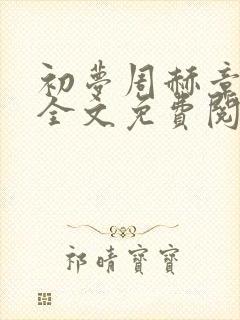 初夢周赫章
全文免費閱
祁晴寶寶